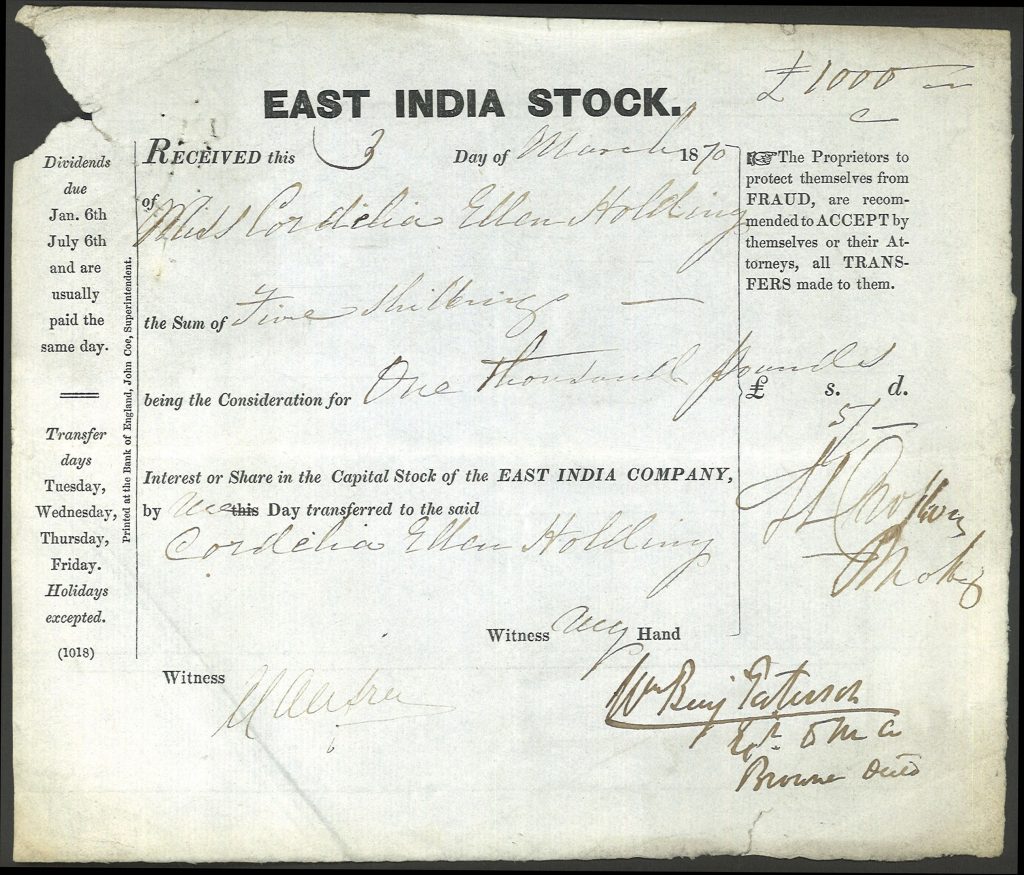 £1000
EAST INDIA STOCK.
Dividends
due
Jan. 6th
July 6th
and are
usually
paid the
same day.
Transfer
days
Tuesday,
Wednesday,
Thursday,
Friday.
Holidays
excepted.
(1018)
Printed at the Bank of England, John Coe, Superintendent.
RECEIVED this 3 Day of March 1870
of Miss Cordelia Ellen Holding
the Sum of Five Shillings —
being the Consideration for One Thousand pounds
Interest or Share in the Capital Stock of the EAST INDIA COMPANY,
by me this Day transferred to the said
Cordelia Ellen Holding
Witness my Hand
Witness
Wm Benj Paterson
Browne
☞ The Proprietors to
protect themselves from
FRAUD, are recom-
mended to ACCEPT by
themselves or their At-
torneys, all TRANS-
FERS made to them.
£ s. d.
5/-